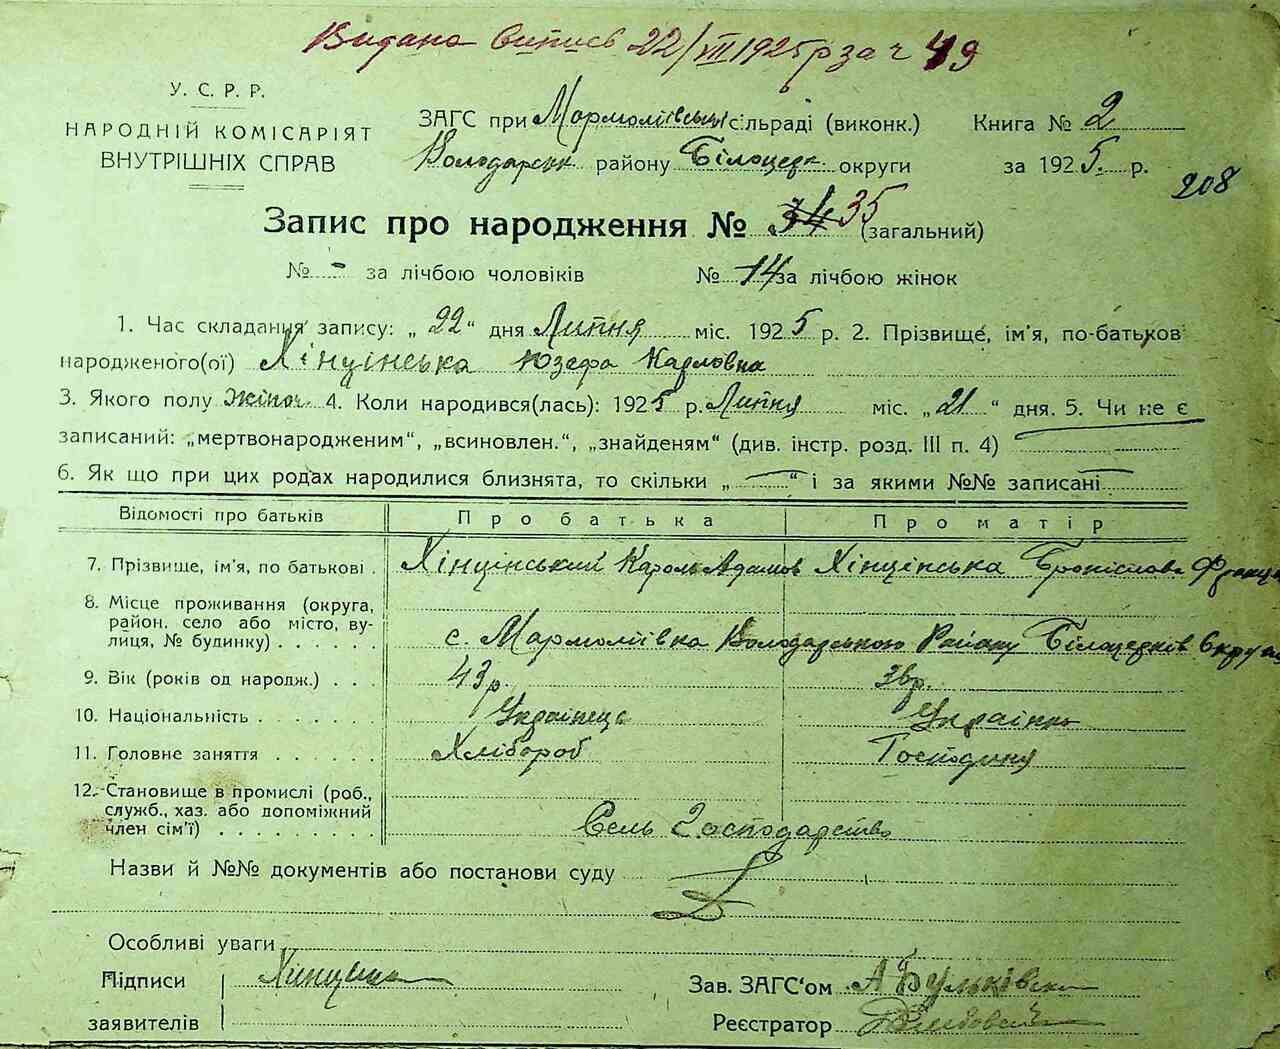 Видана Випись 22/VII 1925 р за ч 49
У. С. Р. Р.
НАРОДНІЙ КОМІСАРІЯТ
ВНУТРІШНІХ СПРАВ
ЗАГС при Мармоліївській сільраді (виконк.) Книга № 2
Володарськ району Білоцерк. округи за 1925 р.
208
Запис про народження № 34 35 (загальний)
№ - за лічбою чоловіків № 14 за лічбою жінок
1. Час складання запису: „22“ дня Липня міс. 1925 р. 2. Прізвище, ім'я, по-батьков
народженого(ої) Хінцінська Юзефа Карловна
3. Якого полу Жіноч. 4. Коли народився(лась): 1925 р. Липня міс. „21“ дня. 5. Чи не є
записаний: „мертвонародженим“, „всиновлен.“, „знайденям“ (див. інстр. розд. III п. 4)
6. Як що при цих родах народилися близнята, то скільки „—“ і за якими №№ записані
Відомості про батьків Про батька Про матір
7. Прізвище, ім'я, по батькові . Хінцінський Кароль Адамов Хінцінська Броніслава Франц
8. Місце проживання (округа,
район, село або місто, ву-
лиця, № будинку) . . . . . . с. Мармоліївка Володарського Району Білоцерків Округи
9. Вік (років од народж.) . . . 43 р. р.
10. Національність . . . . . . . Українець Українка
11. Головне заняття . . . . . . Хлібороб Господиня
12. Становище в промислі (роб.,
служб., хаз. або допоміжний
член сім'ї) . . . . . . . . . Сель Господарство
Назви й №№ документів або постанови суду
Особливі уваги
Підписи Зав. ЗАГС'ом А Бульківськ
заявителів Реєстратор